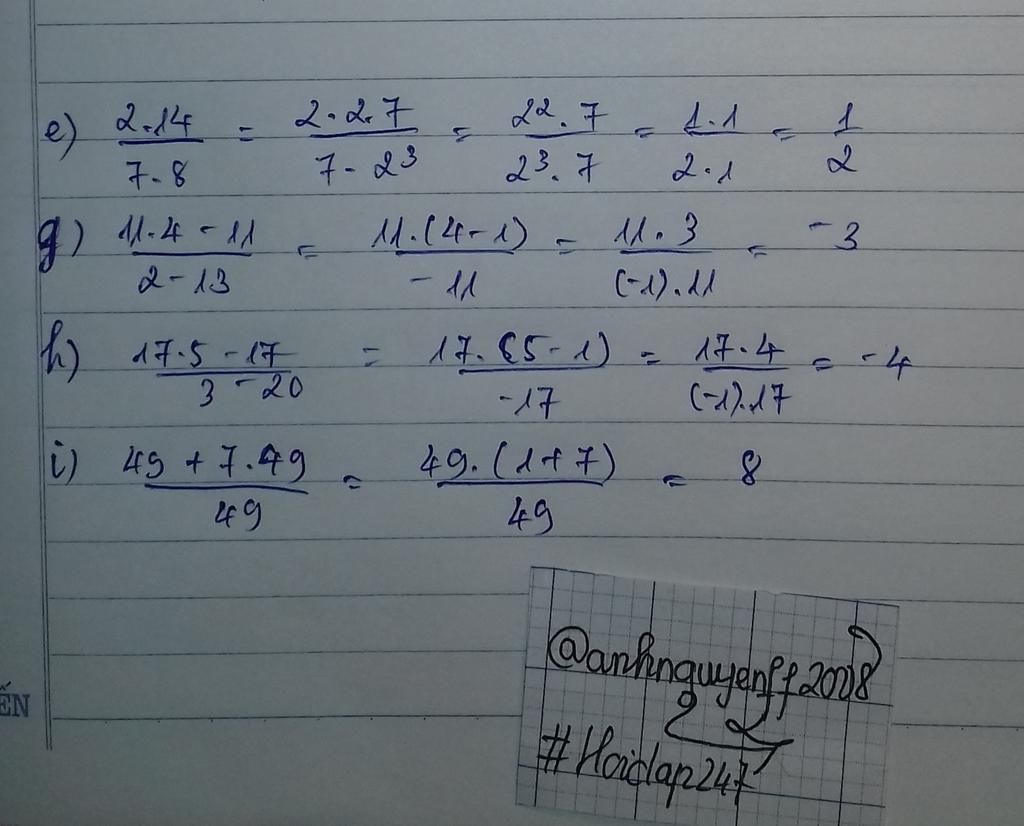 e) 2.14/7.8 = 2.2.7/7.2³ = 2².7/2³.7 = 1.1/2.1 = 1/2
g) 11.4-11/2-13 = 11.(4-1)/-11 = 11.3/(-1).11 = -3
h) 17.5-17/3-20 = 17.(5-1)/-17 = 17.4/(-1).17 = -4
i) 49+7.49/49 = 49.(1+7)/49 = 8
@anhnguyenff2008
#Hoidap247
ẾN